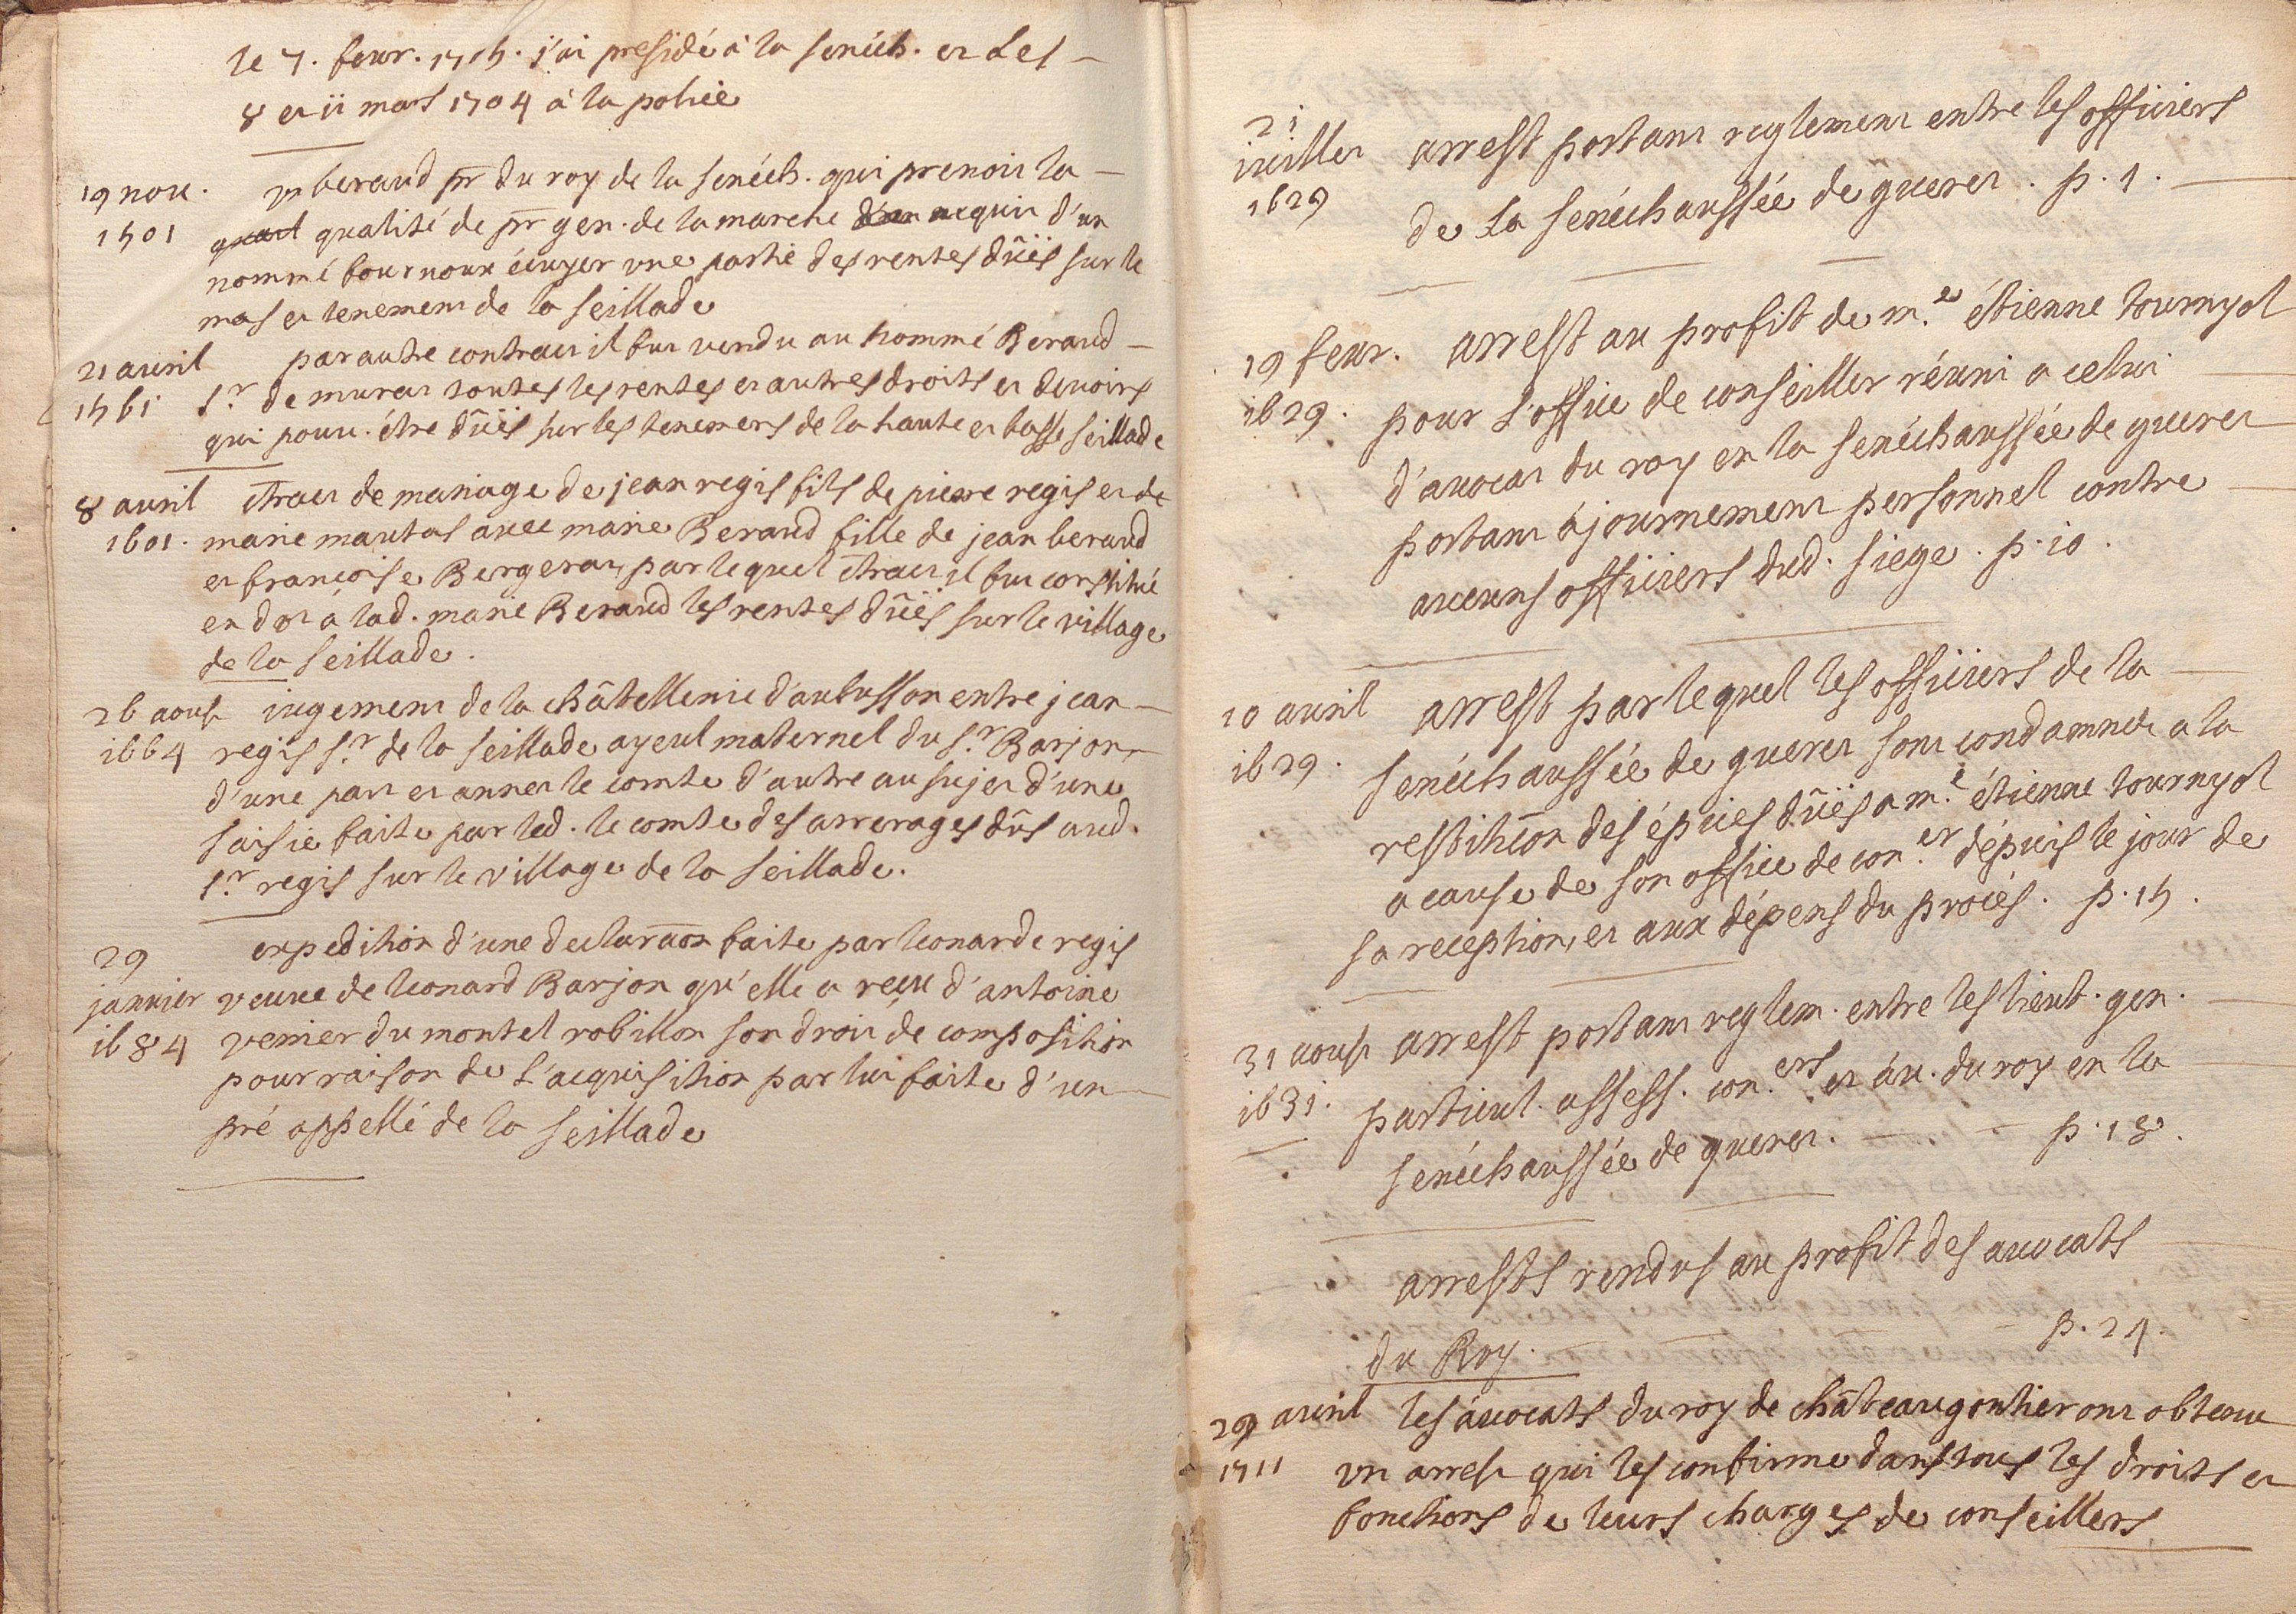 le 7. feur. 1705. j'ai presidé à la senéch. et Les
8 et ii mars 1704 à la police
19 nou. vn beraud pr du roy de la senéch. qui prenoit la
1501 quali qualité de pr gen. de la marche d'un acquit d'un
nommé bournoux écuyer vne partie des rentes dûës sur le
mas et tenement de la seillade
21 auril par autre contract il fut vendu au nommé Beraud
1561 s.r de murat toutes les rentes et autres droits et deuoirs
qui pouu. être dûës sur les tenemens de la haute et basse seillade
8 auril c̄tract de mariage de jean regis fils de pierre regis et de
1601. marie mautas auec marie Beraud fille de jean beraud
et francoise Bergeron, par lequel c̄tract il fut constitué
en dot a lad. marie Beraud les rentes dûës sur le village
de la seillade.
26 aoust iugement de la châtellenie d'aubusson entre jean
1664 regis s.r de la seillade ayeul maternel du s.r Barjon,
d'une part et annet le comte d'autre au sujet d'une
saisie faite par led. le comte des arrerages dûs aud.
s.r regis sur le village de la seillade.
29 expedition d'une declara͞on faite par leonarde regis
januier veuue de leonard Barjon qu'elle a reçu d'antoine
i684 verrier du montel robillon son droit de composition
pour raison de L'acquisition par lui faite d'un
pré appellé de la seillade
21
iuillet arrest portant reglement entre les officiers
1629 de La senéchaussée de gueret. p. 1.
19 feur. arrest au profit de m.e étienne tournyol
i629. pour L'office de conseiller réuni a celui
d'auocat du roy en la senéchaussée de gueret
portant ajournement personnel contre
aucuns officiers dud. siege. p. 10.
10 auril arrest par lequel les officiers de la
i629. senéchaussée de gueret sont condamnés a la
restitu͞on des épices dûës a m.e étienne tournyol
a cause de son office de con.er dépuis le jour de
sa reception, et aux dépens du procés. p. 15.
31 aoust arrest portant reglem. entre les lieut. gen.
i631. particul. assess. con.ers et áu. du roy en la
senéchaussée de gueret. p. 18.
arrests rendus au profit des auocats
du Roy. p. 24.
29 auril les áuocats du roy de châteaugontier ont obtenu
1711 vn arrest qui les confirme dans tous les droits et
fonctions de leurs charges de conseillers